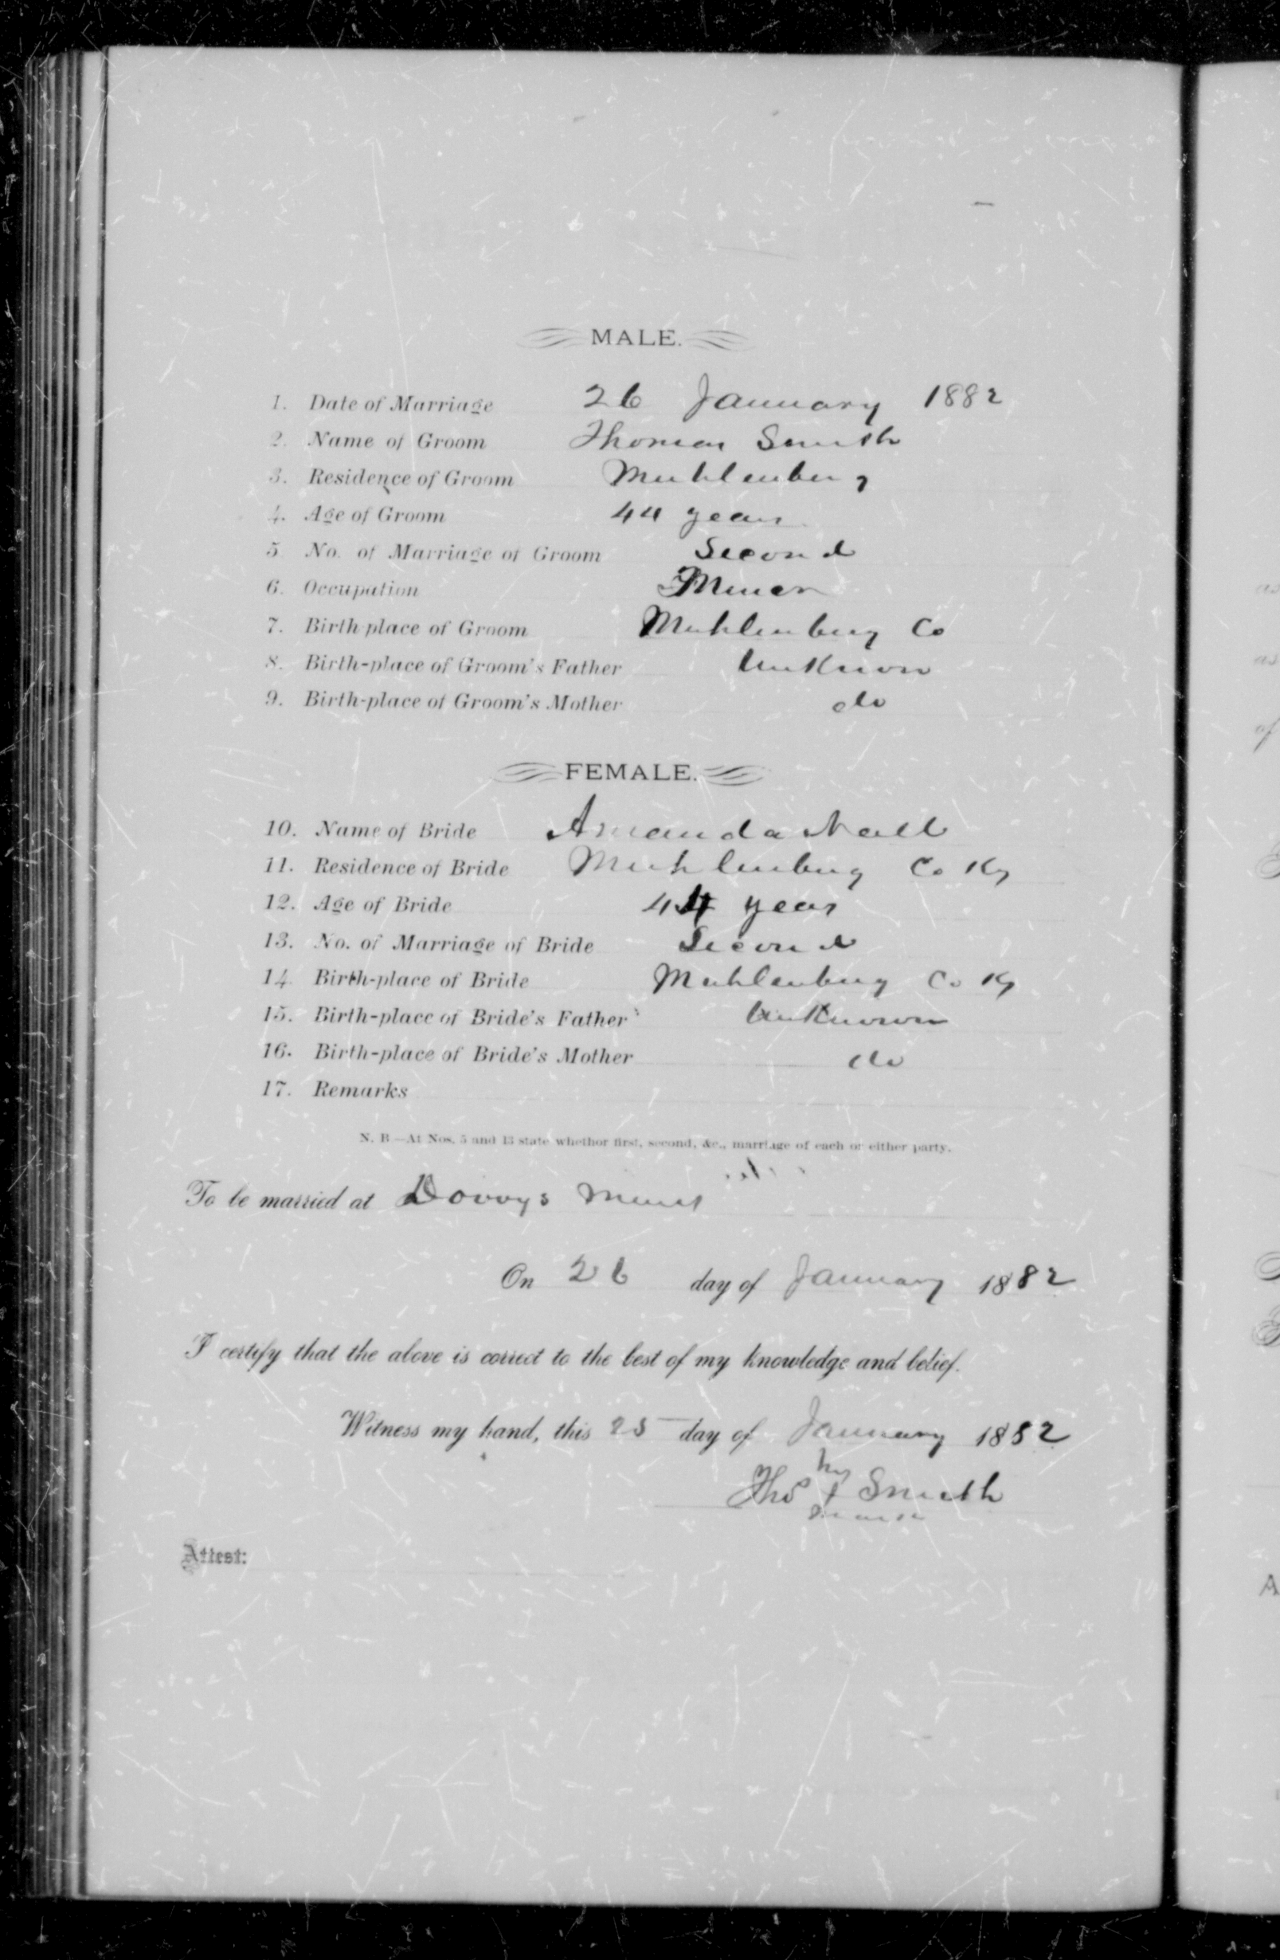 MALE.
1. Date of Marriage 26 January 1882
2. Name of Groom Thomas Smith
3. Residence of Groom Muhlenberg
4. Age of Groom 44 years
5. No. of Marriage of Groom Second
6. Occupation Miner
7. Birth place of Groom Muhlenberg Co
8. Birth-place of Groom's Father Unknown
9. Birth-place of Groom's Mother do
FEMALE.
10. Name of Bride Amanda Nall
11. Residence of Bride Muhlenberg Co Ky
12. Age of Bride 44 years
13. No. of Marriage of Bride Second
14. Birth-place of Bride Muhlenberg Co Ky
15. Birth-place of Bride's Father Unknown
16. Birth-place of Bride's Mother do
17. Remarks
N. B.—At Nos. 5 and 13 state whether first, second, &c., marriage of each or either party.
To be married at Dovvys Mines
On 26 day of January 1882
I certify that the above is correct to the best of my knowledge and belief.
Witness my hand, this 25 day of January 1882
his
Thos X Smith
mark
Attest: